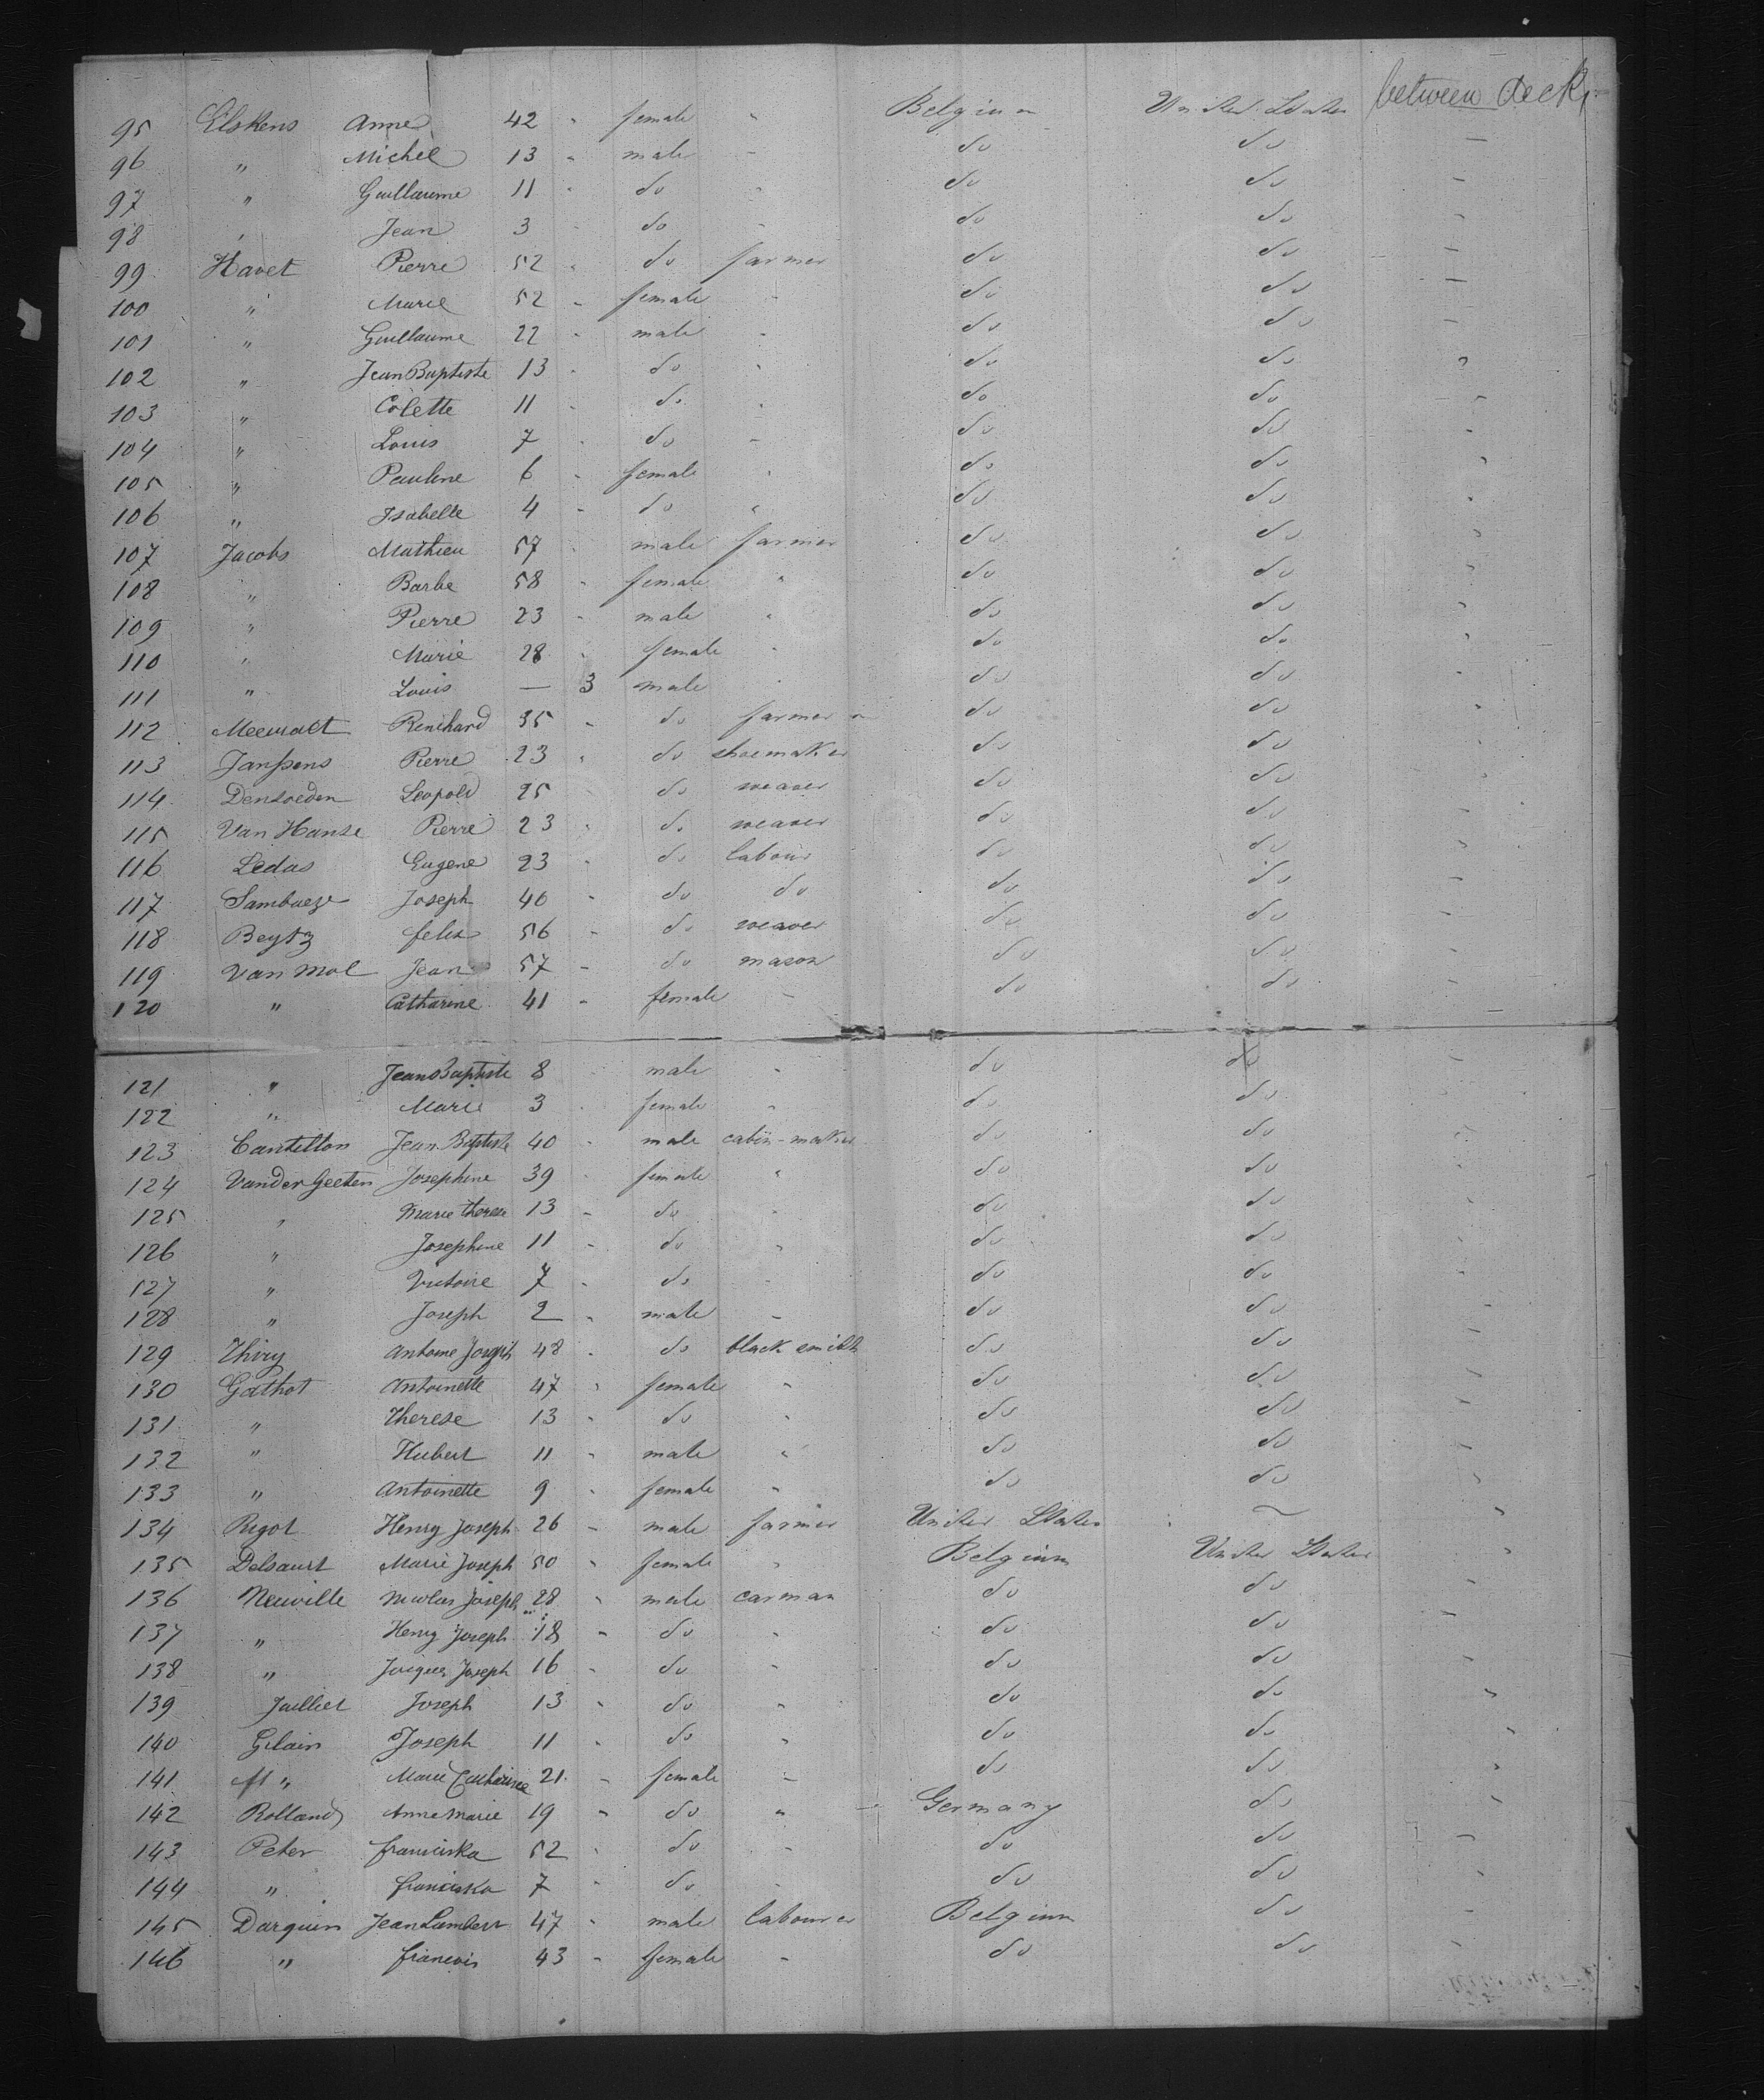 95 Elskens Anne 42 " female " Belgium United States between deck
96 " Michel 13 " male - do do -
97 " Guillaume 11 " do " do do -
98 " Jean 3 " do - do do -
99 Havet Pierre 52 " do farmer do do -
100 " Marie 52 - female - do do -
101 " Guillaume 22 - male - do do -
102 " Jean Baptiste 13 - do " do do "
103 " Colette 11 - do " do do -
104 " Louis 7 - do - do do -
105 " Pauline 6 - female " do do "
106 " Isabelle 4 - do " do do "
107 Jacobs Mathieu 57 " male farmer do do "
108 " Barbe 58 - female " do do "
109 " Pierre 23 - male " do do "
110 " Marie 28 - female - do do "
111 " Louis — 3 male " do do -
112 Renchard 35 - do farmer do do "
113 Janssens Pierre 23 " do shoemaker do do "
114 Densoeden Leopold 25 do weaver do do "
115 Van Hanse Pierre 23 " do weaver do do -
116 Ledas Eugene 23 - do labour do do "
117 Joseph 46 - do do do do -
118 Beytz felix 56 - do weaver do do -
119 Van Mol Jean 57 - do mason do do -
120 " Catharine 41 - female - do do -
121 " Jean Baptiste 8 male - do do -
122 " Marie 3 - female " do do -
123 Cantillon Jean Baptiste 40 - male cabin-maker do do "
124 Vander Geeten Josephine 39 - female " do do "
125 " Marie therese 13 - do " do do "
126 " Josephine 11 - do " do do -
127 " Victoire 7 - do - do do -
128 " Joseph 2 - male - do do -
129 Thiry Antoine Joseph 48 - do black smith do do -
130 Gathot Antoinette 47 " female " do do -
131 " Therese 13 - do " do do -
132 " Hubert 11 - male " do do -
133 " Antoinette 9 " female " do do "
134 Rigot Henry Joseph 26 - male farmer United States ~ "
135 Delsaurt Marie Joseph 50 " female " Belgium United States "
136 Neuville Nicolas Joseph 28 " male carman do do -
137 " Henry Joseph 18 - do " do do -
138 " Jacques Joseph 16 - do - do do -
139 Juillet Joseph 13 " do " do do "
140 Gilain Joseph 11 " do " do do "
141 " Marie Catharine 21 - female - do do "
142 Rolland Anne Marie 19 " do " Germany do "
143 Peter franciska 52 " do - do do -
144 " franciska 7 " do - do do "
145 Darquin Jean Lambert 47 " male labourer Belgium do -
146 " francois 43 - female - do do -